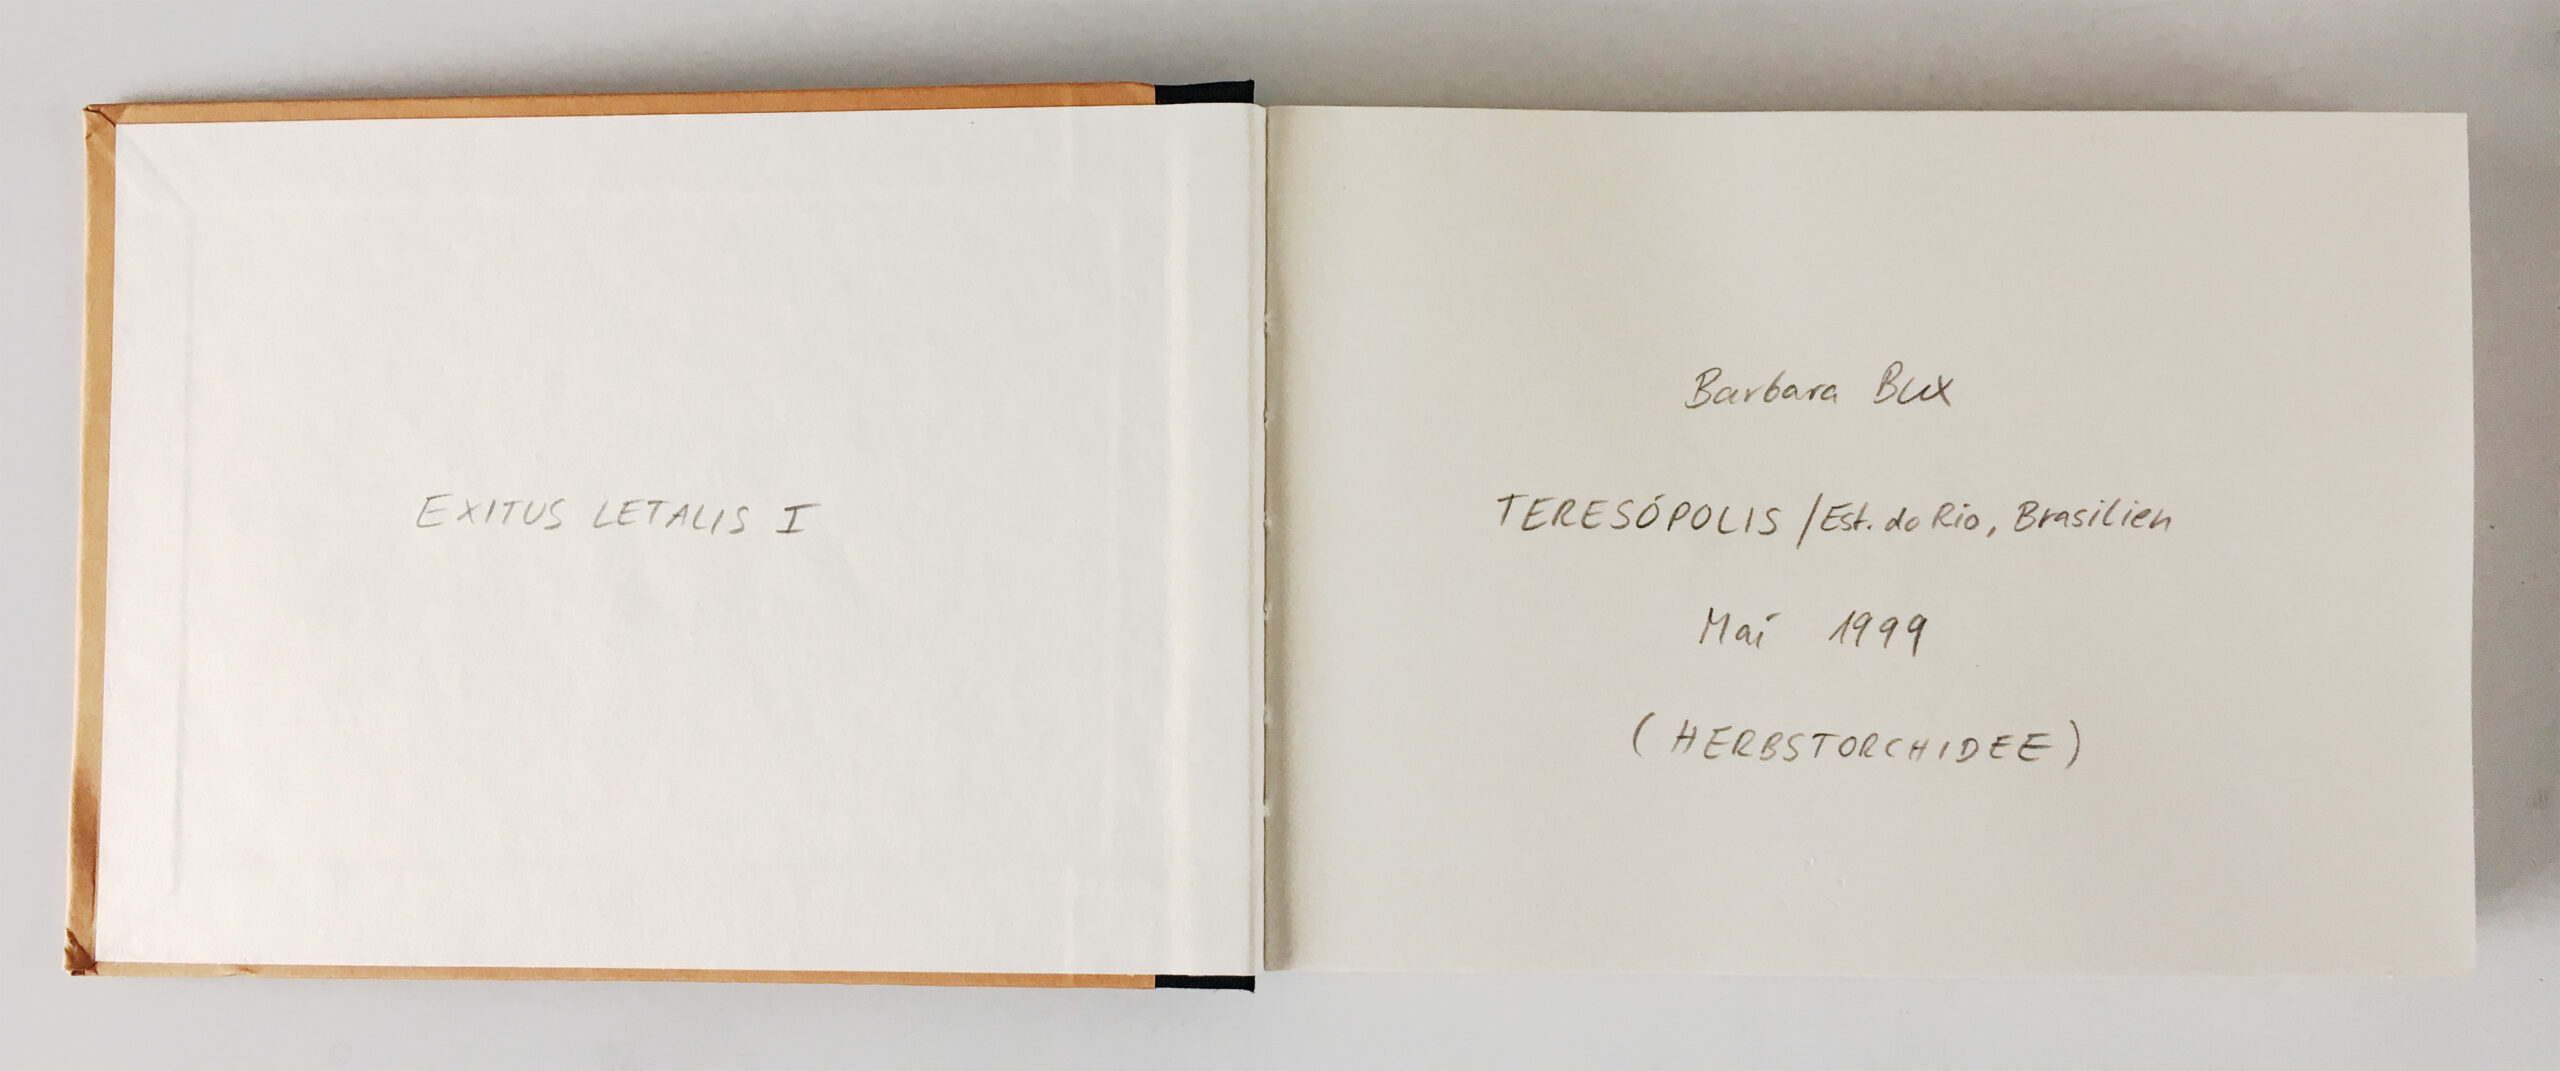 EXITUS LETALIS I
Barbara Bux
TERESÓPOLIS / Est. do Rio, Brasilien
Mai 1999
(HERBSTORCHIDEE)